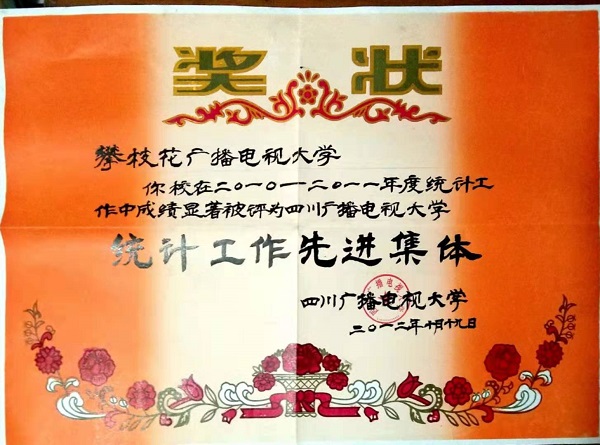 奖状
攀枝花广播电视大学
你校在二〇一〇一二〇一一年度统计工
作中成绩显著被评为四川广播电视大学
统计工作先进集体
四川广播电视大学
二〇一二年十月十九日